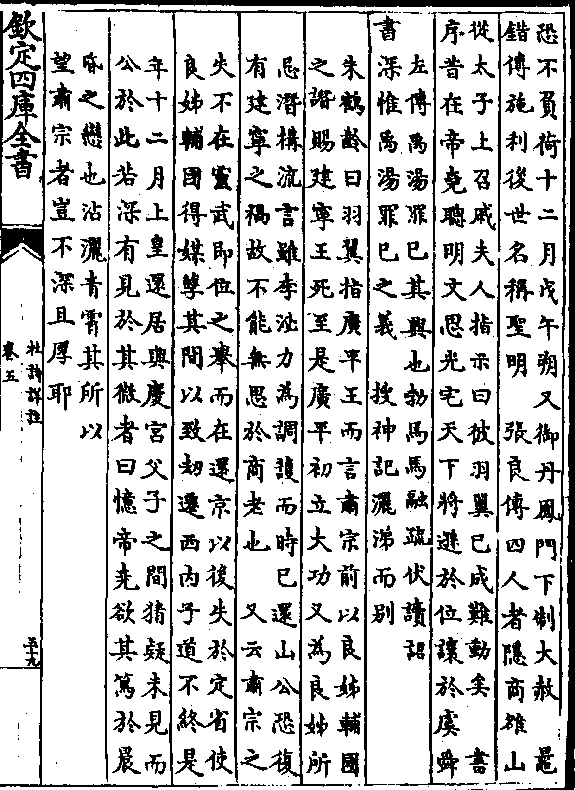 恐不負荷十二月戊午朔又御丹鳳門下制大赦 鼂
錯傳施利後世名稱聖明 張良傳四人者隱商雒山
從太子上召戚夫人指示曰彼羽翼已成難動矣 書
序昔在帝堯聰明文思光宅天下將遜於位讓於虞舜
左傳禹湯罪已其興也勃焉馬融疏伏讀詔
書深惟禹湯罪已之義 搜神記灑涕而别
朱鶴齡曰羽翼指廣平王而言肅宗前以良娣輔國
之譖賜建寧王死至是廣平初立大功又為良娣所
忌潛構流言雖李泌力為調護而時已還山公恐復
有建寧之禍故不能無思於商老也 又云肅宗之
失不在靈武即位之舉而在還京以後失於定省使
良娣輔國得媒孽其間以致刧遷西内子道不終是
年十二月上皇還居興慶宫父子之間猜疑未見而
公於此若深有見於其微者曰憶帝堯欲其篤於晨
昏之戀也沾灑青霄其所以
望肅宗者豈不深且厚耶
欽定四庫全書
杜詩詳註
卷五
五十九